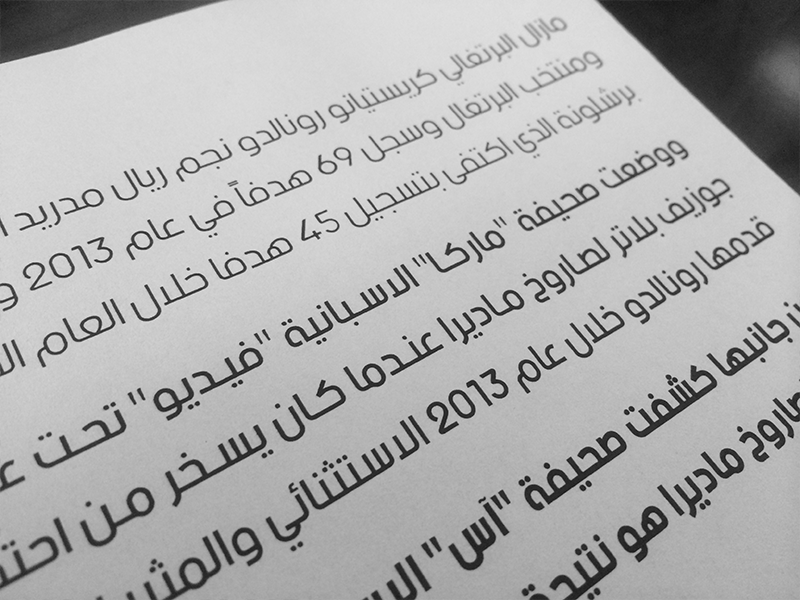 مازال البرتغالي كريستيانو رونالدو نجم ريال مدريد
ومنتخب البرتغال وسجل 69 هدفاً في عام 2013
برشلونة الذي اكتفى بتسجيل 45 هدفا خلال العام
ووضعت صحيفة "ماركا" الاسبانية "فيديو" تحت
جوزيف بلاتر لصاروخ ماديرا عندما كان يسخر من
قدمها رونالدو خلال عام 2013 الاستثنائي
جانبها كشفت صحيفة "آس"
صاروخ ماديرا هو نتيجة